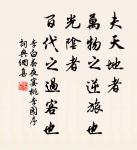 夫天地者
萬物之逆旅也
光陰者
百代之過客也
李白春夜宴桃李園序
詞典網